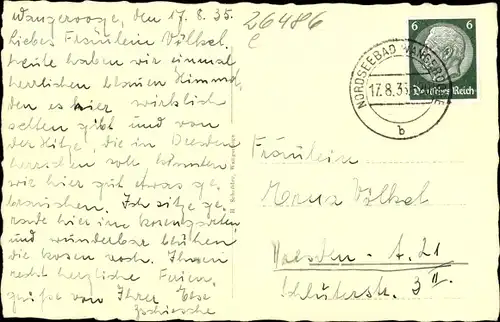 Wangerooge, den 17.8.35.
Liebes Fräulein Völkel.
Heute haben wir einmal
herrlichen blauen Himmel,
den es hier wirklich
selten gibt und von
der Hitze, die in Dresden
herrschen soll könnten
wir hier gut etwas ge
brauchen. Ich sitze ge
rade hier im Rosengarten
und wunderbar blühen
die Rosen noch. Ihnen
recht herzliche Ferien
grüße von Ihrer Else
26486
6 6
Deutsches Reich
NORDSEEBAD WANGEROOGE
17.8.35
b
Fräulein
Völkel
Dresden - A. 21
Schlüterstr. 3 II.